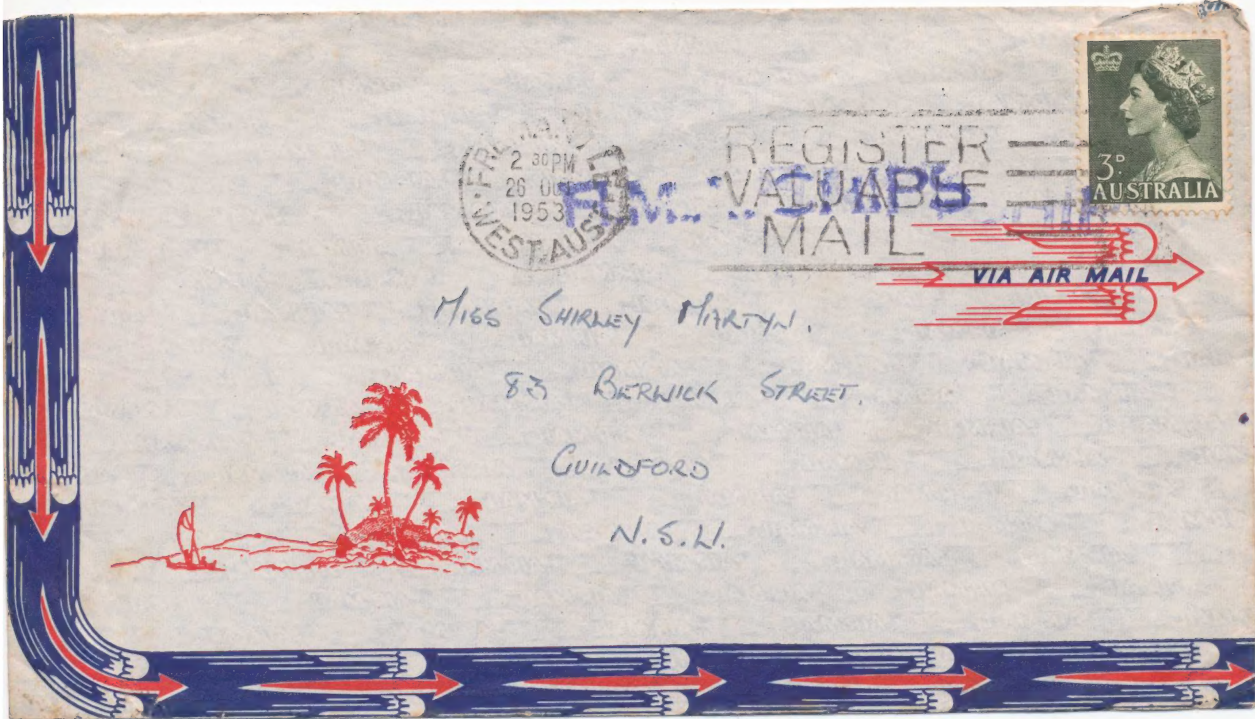 FREMANTLE
2 30PM
26 OCT
1953
W. AUST. AUST
REGISTER
VALUABLE
MAIL
3D
AUSTRALIA
VIA AIR MAIL
MISS SHIRLEY MARTYN.
83 BERWICK STREET.
GUILDFORD
N.S.W.